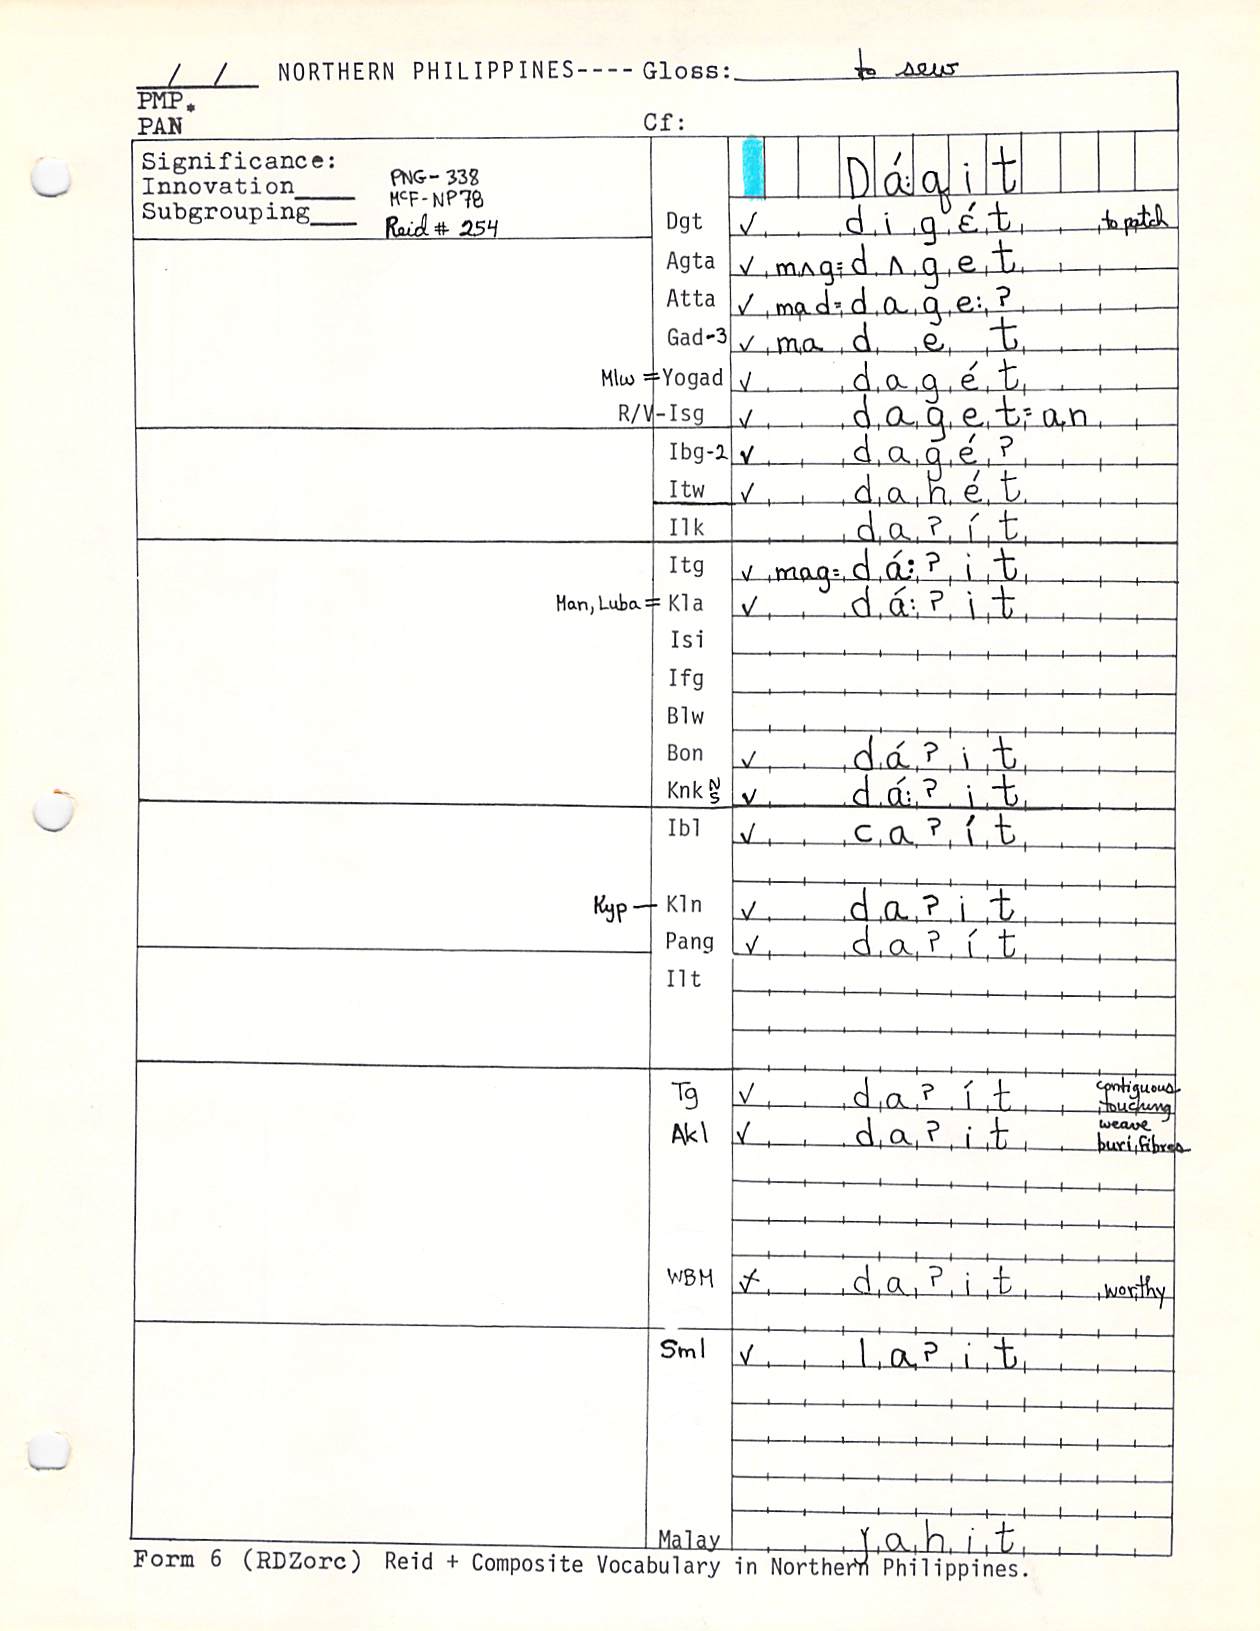 / / NORTHERN PHILIPPINES---- Gloss: to sew
PMP*
PAN Cf:
Significance: PNG-338
Innovation____ McF-NP78
Subgrouping____ Reid # 254
Dá:qit
Dgt ✓ digɛ́t to patch
Agta ✓ mʌg=dʌget
Atta ✓ mad=dage:?
Gad-3 ✓ ma d e t
Mlw = Yogad ✓ dagét
R/V-Isg ✓ daget=an
Ibg-2 ✓ dagé?
Itw ✓ dahét
Ilk da?ít
Itg ✓ mag=dá:?it
Man, Luba = Kla ✓ dá:?it
Isi
Ifg
Blw
Bon ✓ dá?it
Knk N S ✓ dá:?it
Ibl ✓ ca?ít
Kyp — Kln ✓ da?it
Pang ✓ da?ít
Ilt
Tg ✓ da?ít contiguous touching
Akl ✓ da?it weave buri fibres
WBM da?it worthy
Sml ✓ la?it
Malay jahit
Form 6 (RDZorc) Reid + Composite Vocabulary in Northern Philippines.